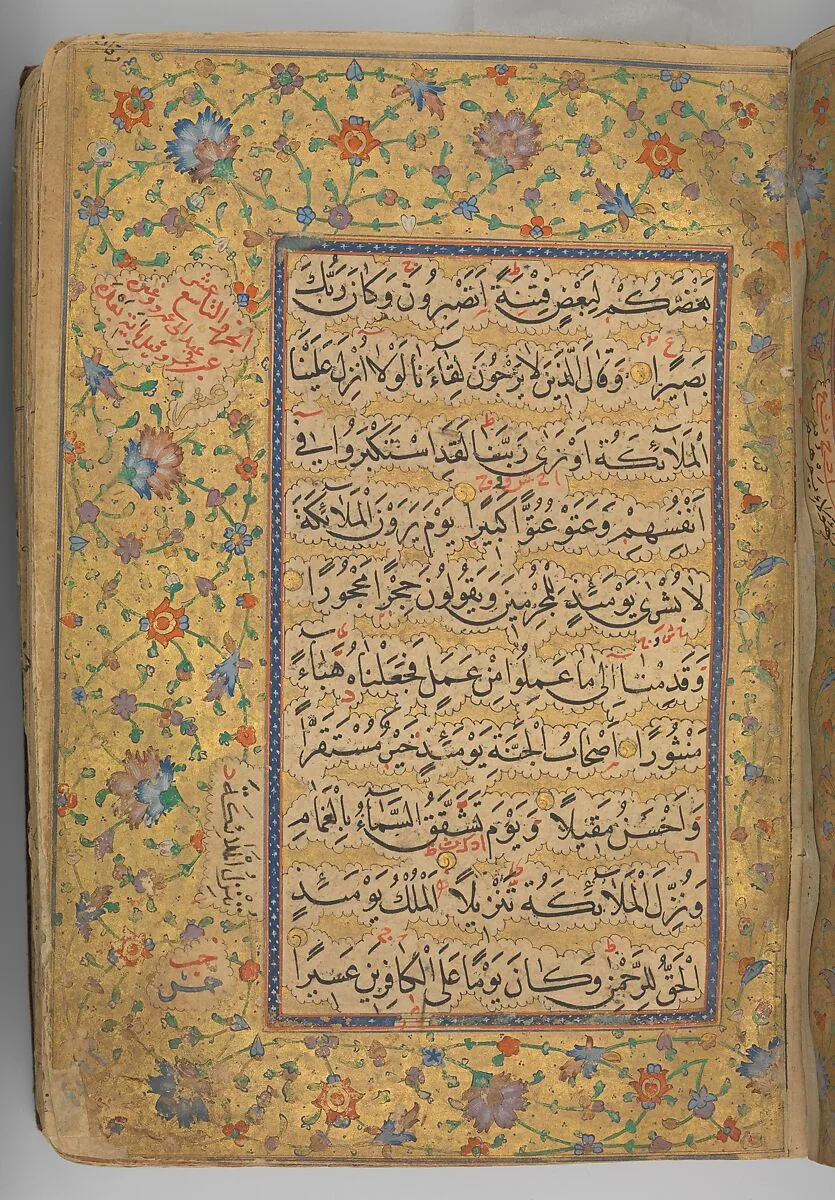 بَعْضَكُمْ لِبَعْضٍ فِتْنَةً اَتَصْبِرُونَ وَكَانَ رَبُّكَ
بَصِيرًا وَقَالَ الَّذِينَ لَا يَرْجُونَ لِقَاءَنَا لَوْلَا اُنْزِلَ عَلَيْنَا
الْمَلَائِكَةُ اَوْ نَرٰى رَبَّنَا لَقَدِ اسْتَكْبَرُوا فِي
اَنْفُسِهِمْ وَعَتَوْ عُتُوًّا كَبِيرًا يَوْمَ يَرَوْنَ الْمَلَائِكَةَ
لَا بُشْرٰى يَوْمَئِذٍ لِلْمُجْرِمِينَ وَيَقُولُونَ حِجْرًا مَحْجُورًا
وَقَدِمْنَا اِلٰى مَا عَمِلُوا مِنْ عَمَلٍ فَجَعَلْنَاهُ هَبَاءً
مَنْثُورًا اَصْحَابُ الْجَنَّةِ يَوْمَئِذٍ خَيْرٌ مُسْتَقَرًّا
وَاَحْسَنُ مَقِيلًا وَيَوْمَ تَشَقَّقُ السَّمَاءُ بِالْغَمَامِ
وَنُزِّلَ الْمَلَائِكَةُ تَنْزِيلًا اَلْمُلْكُ يَوْمَئِذٍ
الْحَقُّ لِلرَّحْمٰنِ وَكَانَ يَوْمًا عَلَى الْكَافِرِينَ عَسِيرًا
الجزء التاسع عشر